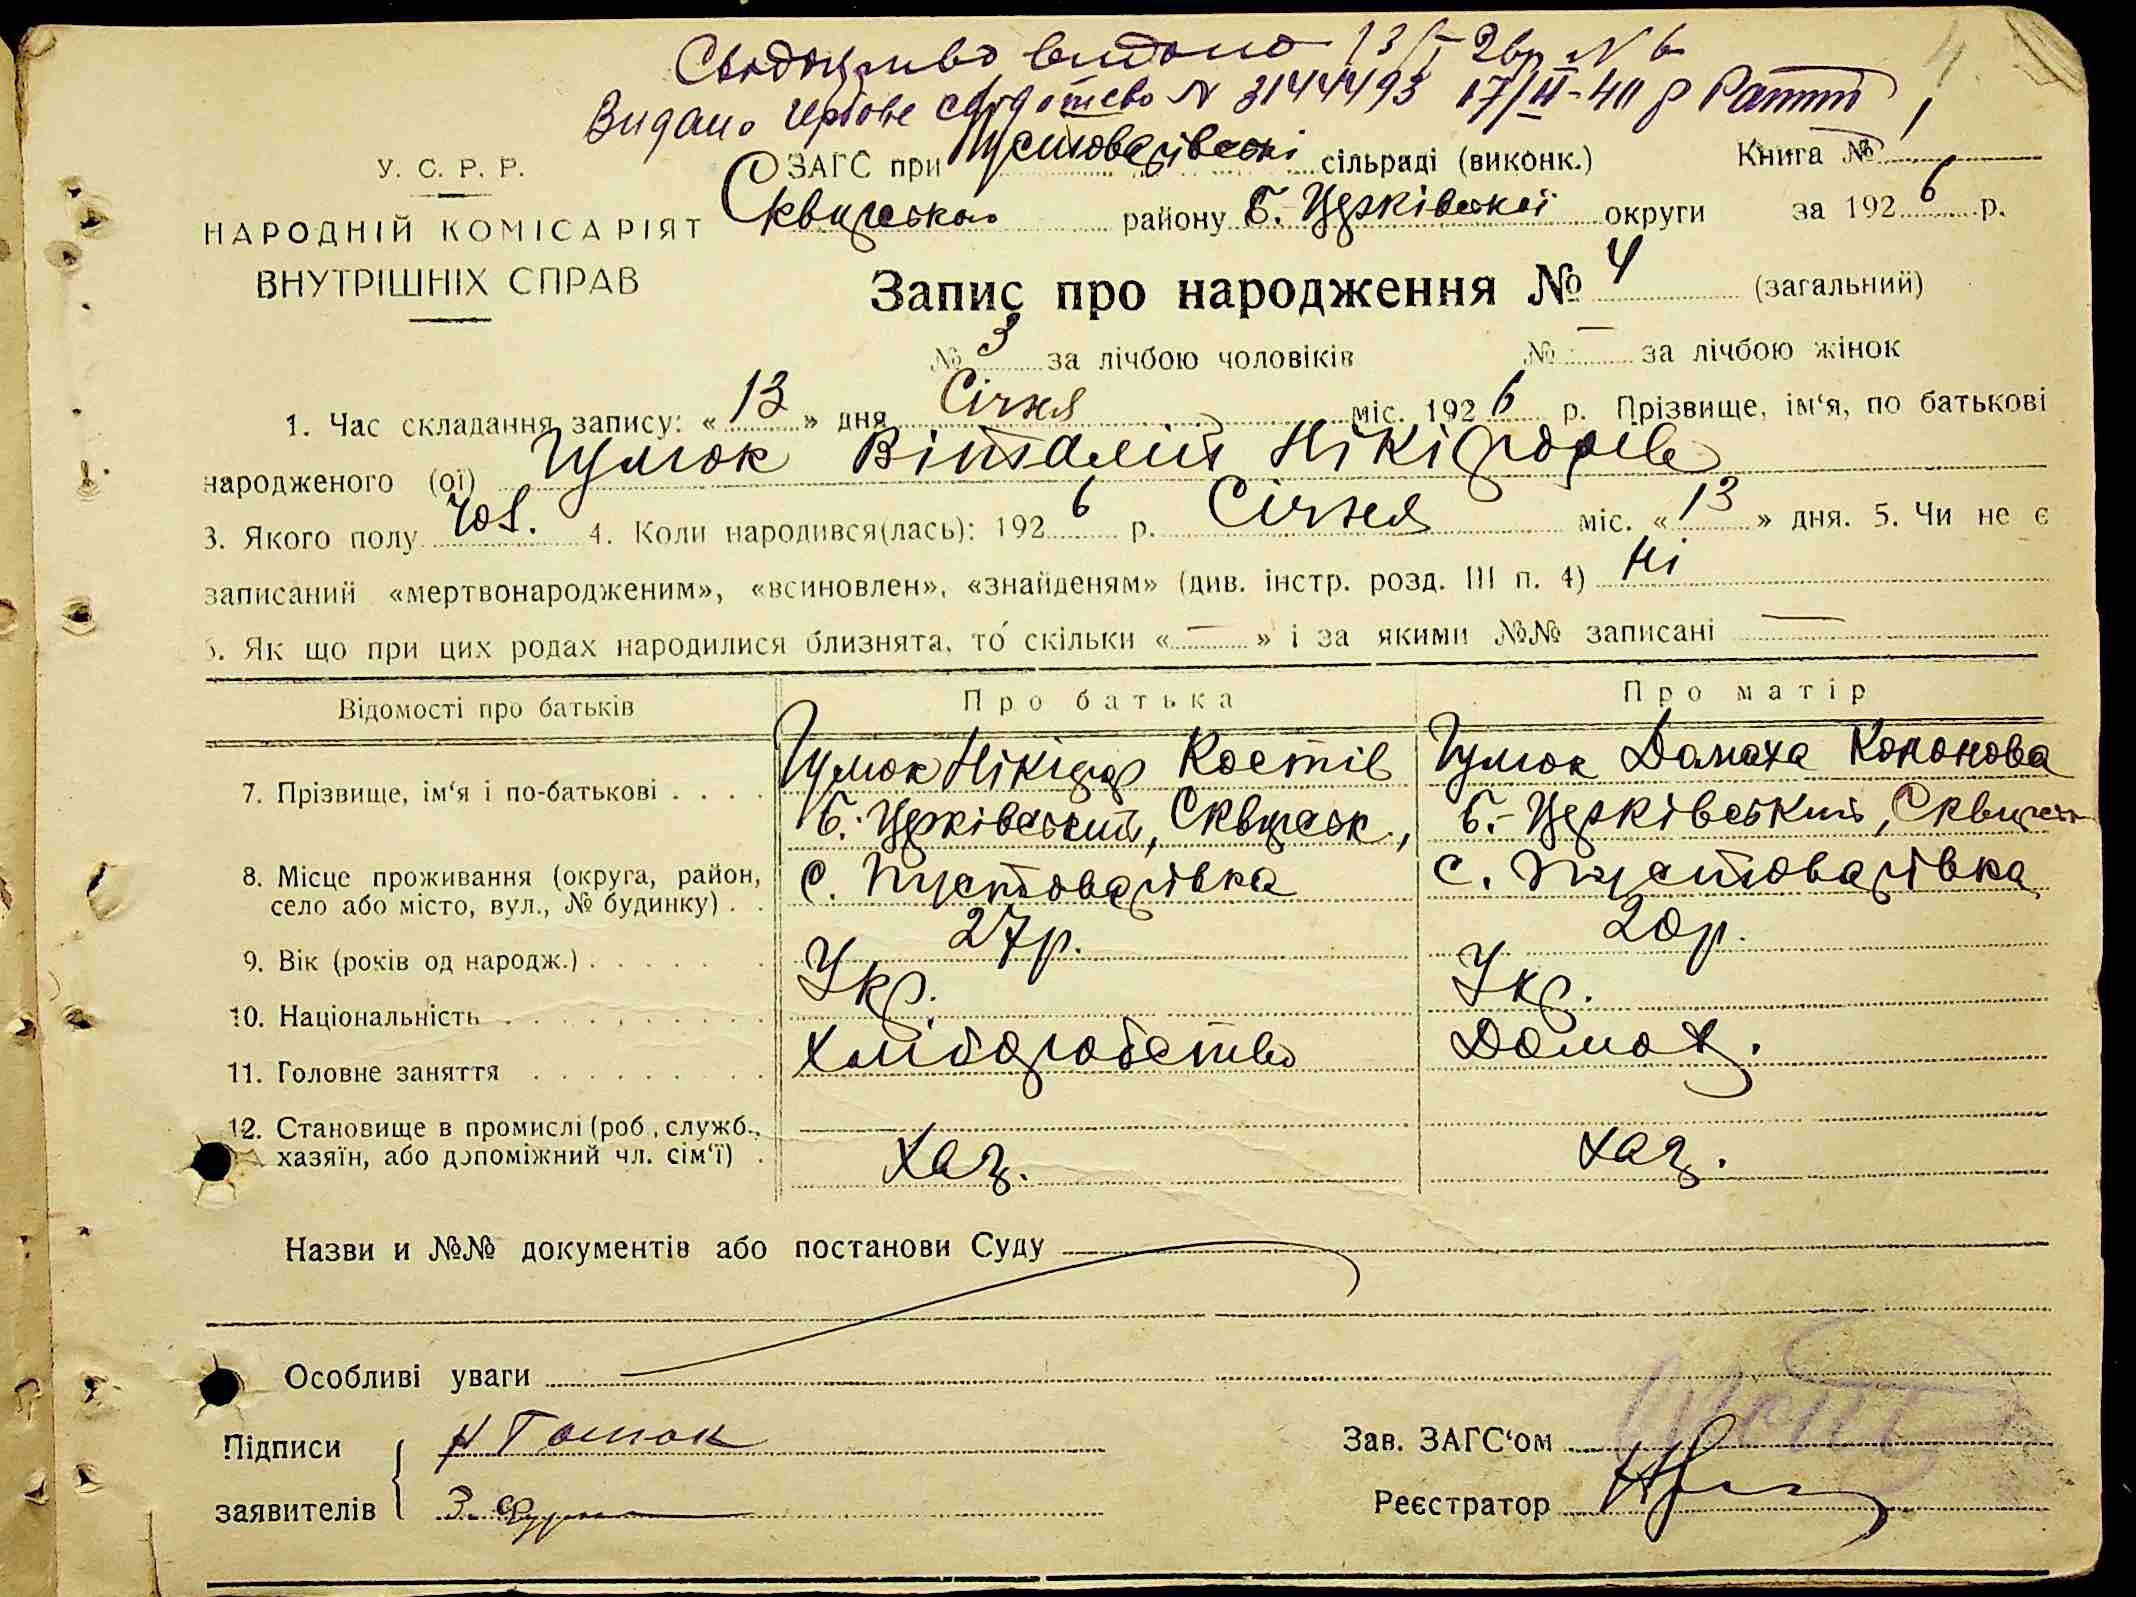 Свідоцтво видано 13/I 26р N 6
Видано Чербове свідотство N 3144493 17/II-40 р
У. С. Р. Р.
НАРОДНІЙ КОМІСАРІЯТ
ВНУТРІШНІХ СПРАВ
ЗАГС при Пустоварівські сільраді (виконк.) Книга №
Сквирського району Б. Церківської округи за 1926 р.
Запис про народження № 4 (загальний)
№ 3 за лічбою чоловіків № — за лічбою жінок
1. Час складання запису: « 13 » дня Січня міс. 1926 р. Прізвище, ім‘я, по батькові
народженого (ої) Віталій Нікіфорів
3. Якого полу Чол. 4. Коли народився(лась): 1926 р. Січня міс. « 13 » дня. 5. Чи не є
записаний «мертвонародженим», «всиновлен», «знайденям» (див. інстр. розд. III п. 4) Ні
6. Як що при цих родах народилися близнята, то скільки « — » і за якими №№ записані —
Відомості про батьків Про батька Про матір
7. Прізвище, ім‘я і по-батькові . . . . Нікіфор Костів Домаха Кононова
Б. Церківський, Сквирськ., Б.-Церківський, Сквирськ
8. Місце проживання (округа, район, село або місто, вул., № будинку) . . с. Пустоварівка с. Пустоварівка
9. Вік (років од народж.) . . . . . . 27р. 20р.
10. Національність . . . . . . . . Укр. Укр.
11. Головне заняття . . . . . . . . Хліборобство Домаж.
12. Становище в промислі (роб., служб., хазяїн, або допоміжний чл. сім‘ї) . Хаз. Хаз.
Назви и №№ документів або постанови Суду
Особливі уваги
Підписи
заявителів
Зав. ЗАГС‘ом
Реєстратор